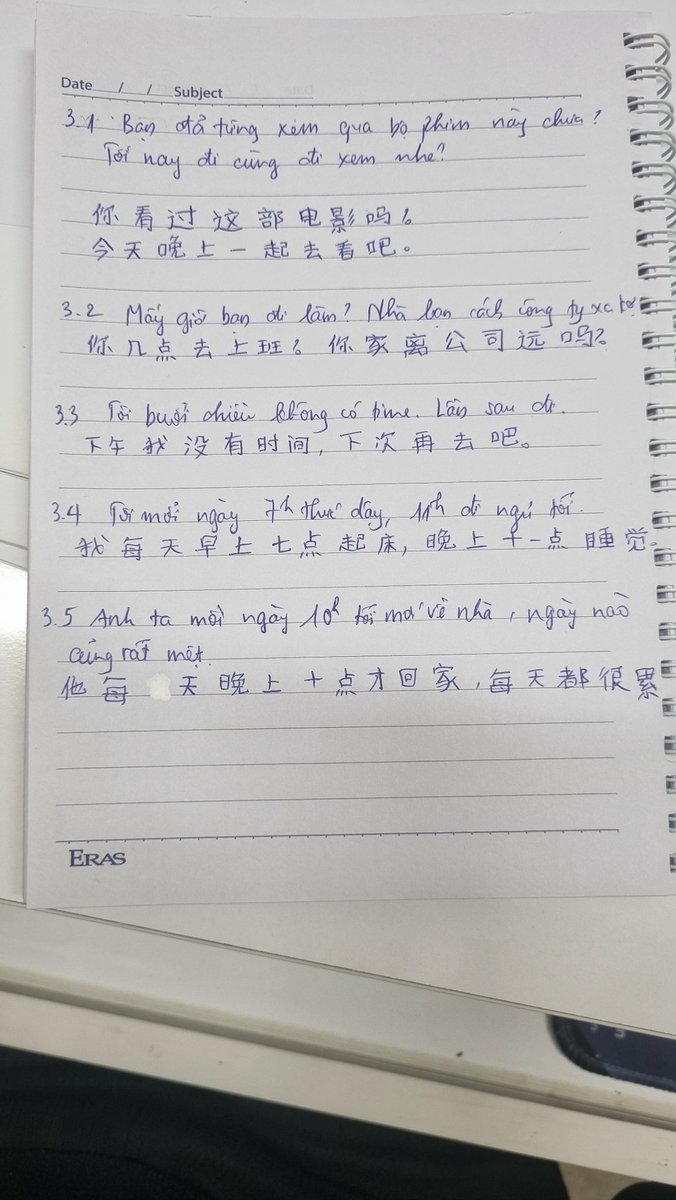 Date / / Subject
3.1 Bạn đã từng xem qua bộ phim này chưa?
Tối nay đi cùng đi xem nhé?
你看过这部电影吗?
今天晚上一起去看吧。
3.2 Mấy giờ bạn đi làm? Nhà bạn cách công ty xa
你几点去上班? 你家离公司远吗?
3.3 Tôi buổi chiều không có time. Lần sau đi.
下午我没有时间, 下次再去吧。
3.4 Tôi mỗi ngày 7h thức dậy, 11h đi ngủ tối.
我每天早上七点起床, 晚上十一点睡觉。
3.5 Anh ta mỗi ngày 10h tối mới về nhà, ngày nào
cũng rất mệt.
他每天晚上十点才回家, 每天都很累
ERAS